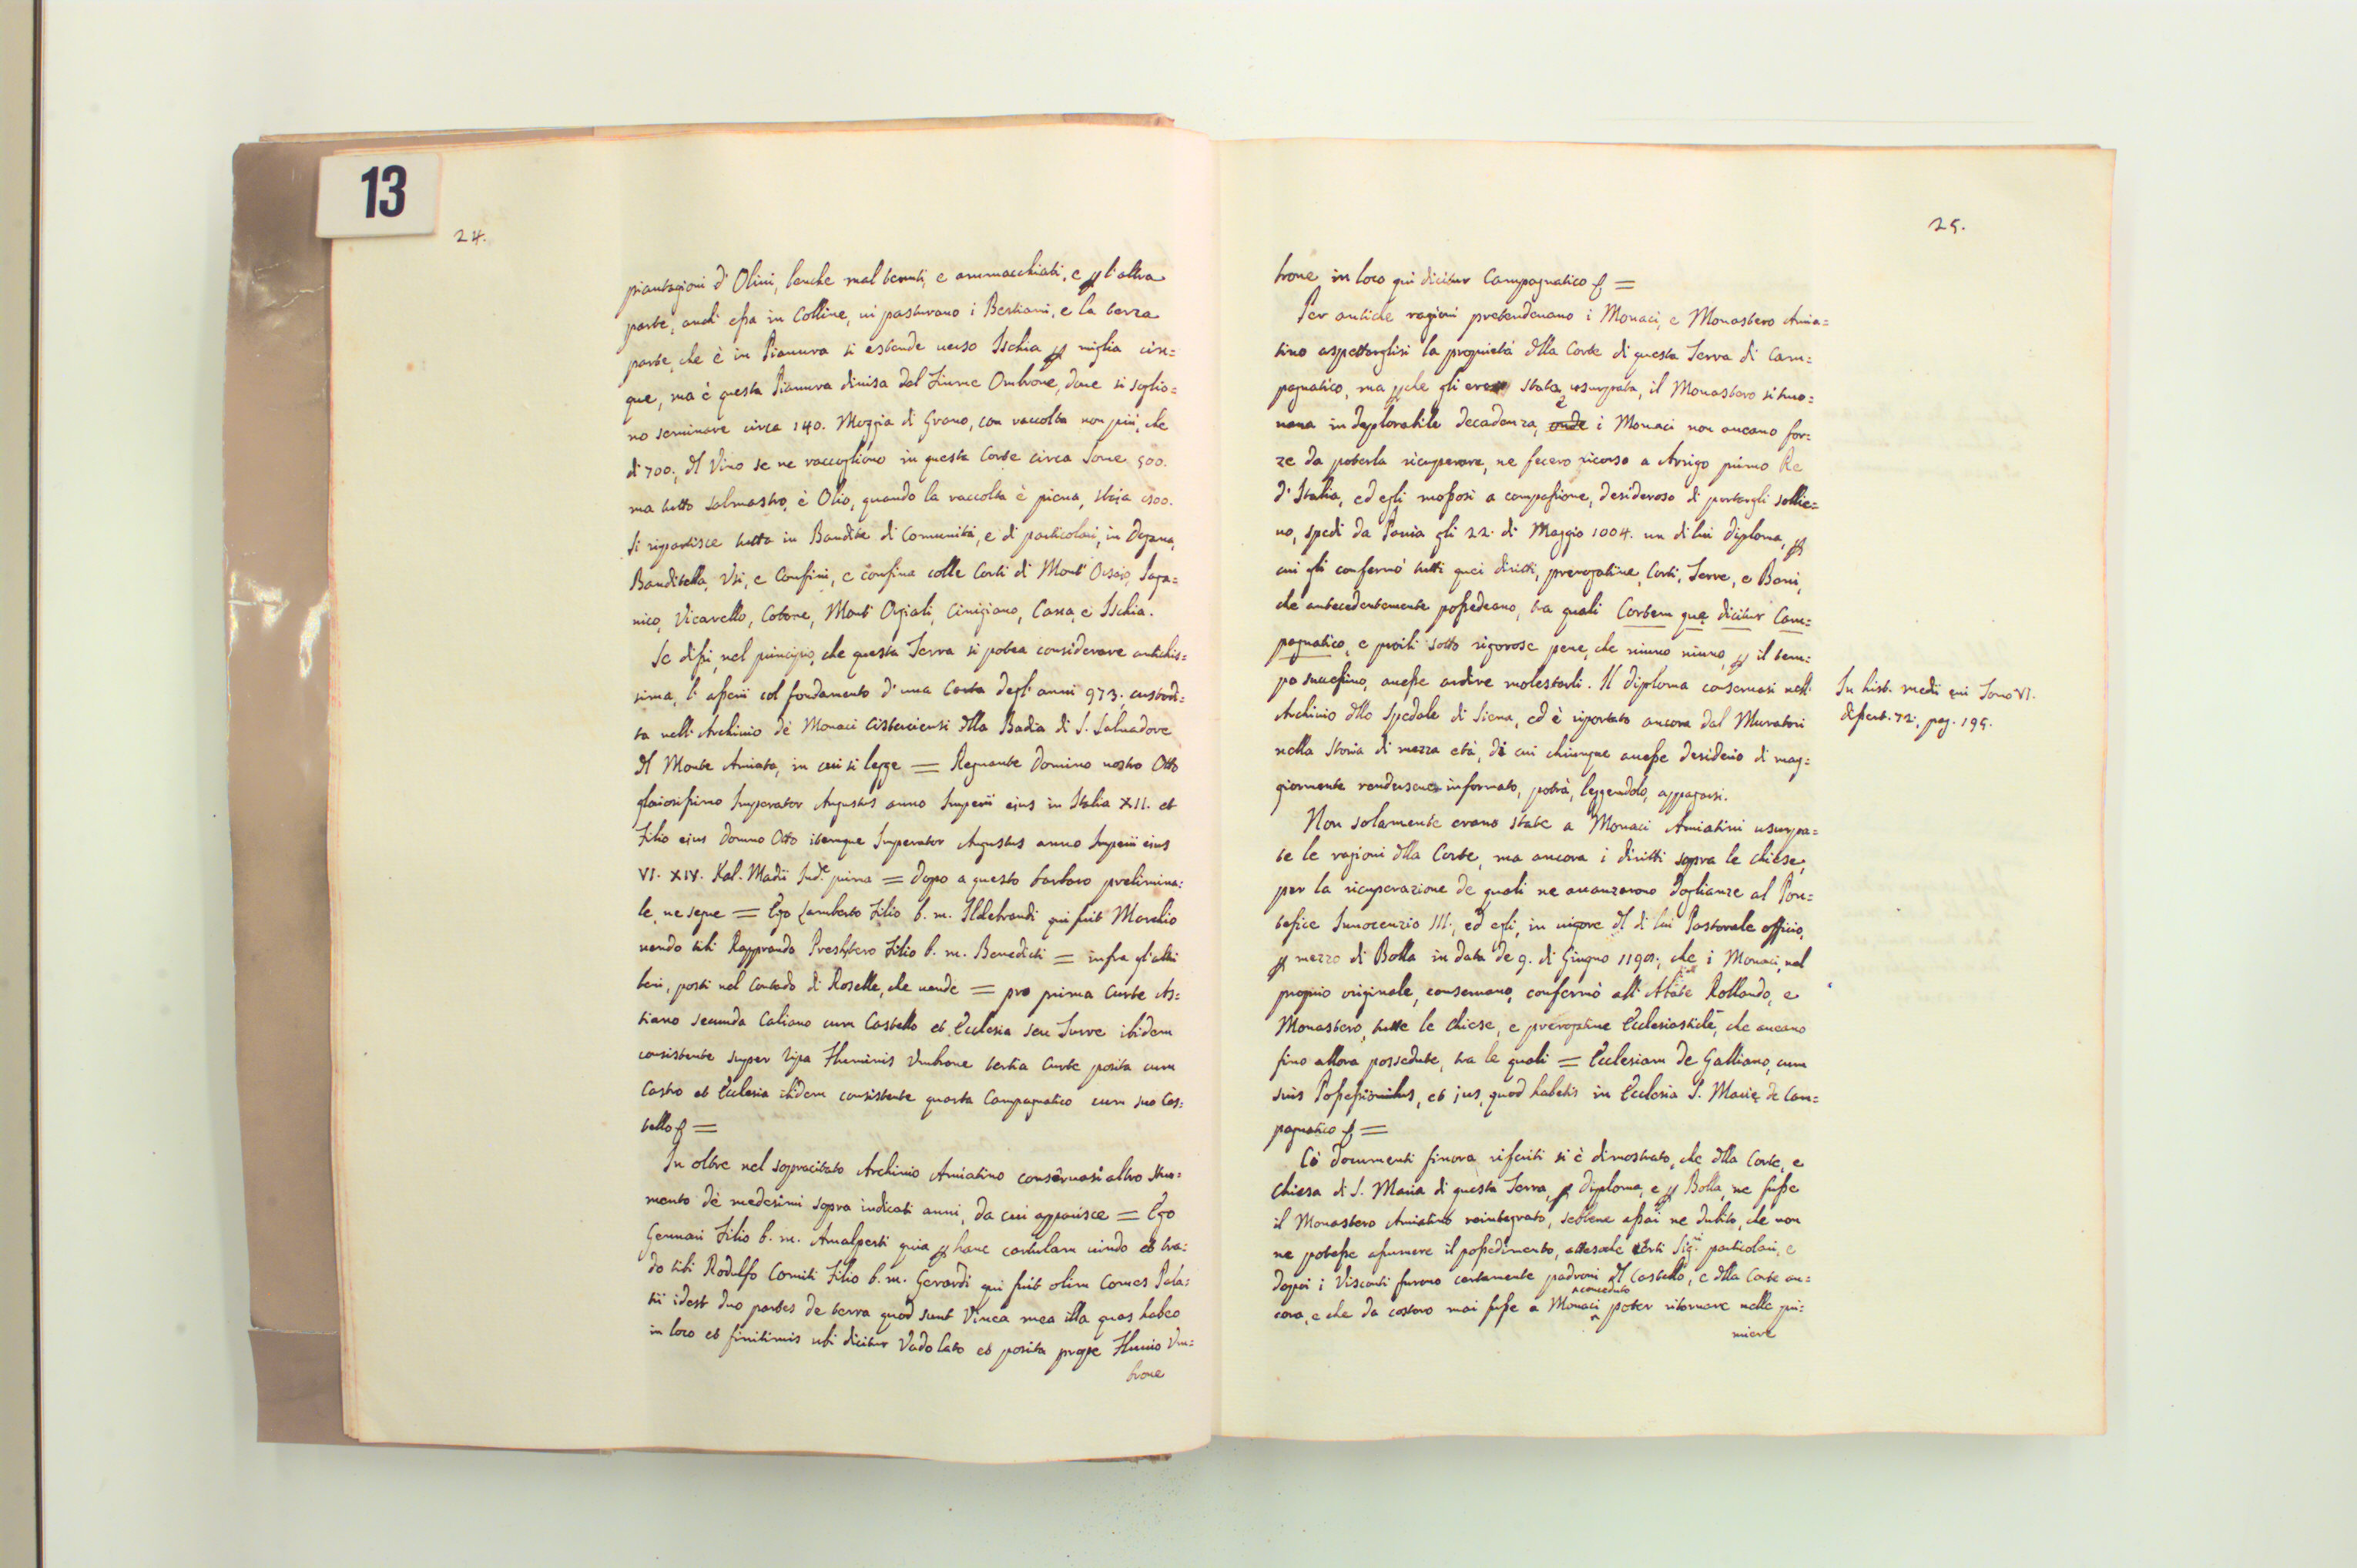 13
24.
piantagioni d'Olivi, benche mal tenuti, e ammacchiati, e p l'altra
parte, anch'essa in Colline, vi pasturano i Bestiami, e la terza
parte, che è in Pianura si estende verso Ischia p miglia cin=
que, ma è questa Pianura divisa dal Fiume Ombrone, dove si soglio=
no seminare circa 140. Moggia di Grano, con raccolta non più, che
di 700. Dl Vino se ne raccogliono in questa Corte circa Some 500.
ma tutto salmastro, è Olio, quando la raccolta è piena, staja
Si ripartisce tutta in Bandite di Comunità, e di particolari, in Dogana,
Banditella, Usi, e Confini, e confina colle Corti di Mont'Orsaio, Paga=
nico, Vicarello, Cotone, Mont'Orgiali, Cinigiano, Cana, e Ischia.
Se dissi, nel principio, che questa Terra si potea considerare antichis=
sima, l'asserii col fondamento d'una Carta degl'anni 973., custodi=
ta nell'Archivio dè Monaci Cisterciensi dlla Badia di S. Salvadore
dl Monte Amiata, in cui si legge = Regnante Domino nostro Otto
gloriosissimo Imperator Augustus anno Imperii ejus in Italia XII. et
Filio ejus Domno Otto itemque Imperator Augustus anno Imperii eius
VI. XIV. Kal. Madii Ind.e prima = dopo a questo barbaro prelimina=
le, ne segue = Ego Lamberto Filio b. m. Ildebrandi qui fuit Marchio
vendo tibi Rapprando Presbytero Filio b. m. Benedicti = infra gl'altri
beni, posti nel Contado di Roselle, che vende = pro prima Curte As=
tiano secunda Caliano cum Castello et Ecclesia seu Turre ibidem
consistente super ripa Fluminis Umbrone tertia Curte posita cum
Castro et Ecclesia ibidem consistente quarta Campagnatico cum suo Cas=
tello &=
In oltre nel sopracitato Archivio Amiatino conservasi altro Stru=
mento dè medesimi sopra indicati anni, da cui apparisce = Ego
Gennari Filio b. m. Amalperti quia p hanc cartulam vindo et tra=
do tibi Rodulfo Comiti Filio b. m. Gerardi qui fuit olim Comes Pala=
tii idest duo partes de terra quod sunt Vinea mea illa quas habeo
in loco et finitimis ubi dicitur Vado lato et posita prope Fluvio Um=
brone
25.
brone in loco qui dicitur Campagnatico &=
Per antiche ragioni pretendevano i Monaci, e Monastero Amia=
tino aspettarglisi la proprietà dlla Corte di questa Terra di Cam=
pagnatico, ma p che gli era stata usurpata, il Monastero si truo=
vava in deplorabile decadenza, onde e i Monaci non aveano for=
ze da poterla ricuperare, ne fecero ricorso a Arrigo primo Re
d'Italia, ed egli mossosi a compassione, desideroso di portargli sollie=
vo, spedì da Pavia gli 22. di Maggio 1004. un di lui diploma, p
cui gli confermò tutti quei diritti, prerogative, Corti, Terre, e Beni,
che antecedentemente possedeano, tra quali Cortem que dicitur Cam=
pagnatico, e proibì sotto rigorose pene, che niuno niuno, p il tem=
po successivo, avesse ardire molestarli. Il diploma conservasi nell'
Archivio dllo Spedale di Siena, ed è riportato ancora dal Muratori
nella Storia di mezza età, di cui chiunque avesse desiderio di mag=
giormente rendersene informato, potrà, leggendolo, appagarsi.
In hist. medi evi Tomo VI.
dissert. 72. pag. 195.
Non solamente erano state a Monaci Amiatini usurpa=
te le ragioni dlla Corte, ma ancora i diritti sopra le chiese,
per la ricuperazione de quali ne avanzarono Doglianze al Pon=
tefice Innocenzio III., ed egli, in vigore dl di lui Pastorale officio,
p mezzo di Bolla in data de 9. di Giugno che i Monaci, nel
proprio originale, conservano, confermò all'Abate Rollando, e
Monastero, tutte le Chiese, e prerogative Ecclesiastiche, che aveano
fino allora possedute, tra le quali = Ecclesiam de Galliano, cum
suis Possessionibus, et jus, quod habetis in Ecclesia S. Marie de Cam=
pagnatico &=
Cò documenti finora riferiti si è dimostrato, che dlla Corte, e
Chiesa di S. Maria di questa Terra, p diploma, e p Bolla, ne fusse
il Monastero Amiatino reintegrato, sebbene assai ne dubito, che non
ne potesse assumere il possedimento, attesoche certi Sig.ri particolari, e
doppoi i Visconti furono certamente padroni dl Castello, e dlla Corte an=
cora, e che da costoro mai fusse a Monaci permeduto poter ritornare nelle pri=
miere